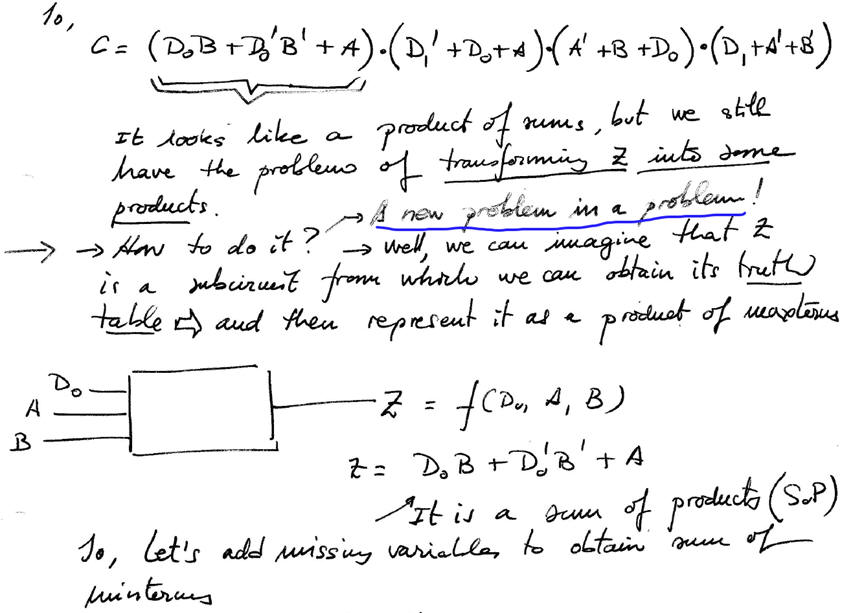 So,
C = (D₀B + D₀'B' + A)·(D₁' + D₀ + A)·(A' + B + D₀)·(D₁ + A' + B')
It looks like a product of sums, but we still
have the problems of transforming Z into some
products.
→ A new problem in a problem!
→ → How to do it? → well, we can imagine that Z
is a subcircuit from which we can obtain its truth
table ⇨ and then represent it as a product of maxterms
D₀
A
B
Z = f(D₀, A, B)
Z = D₀B + D₀'B' + A
It is a sum of products (SoP)
So, Let's add missing variables to obtain sum of
minterms